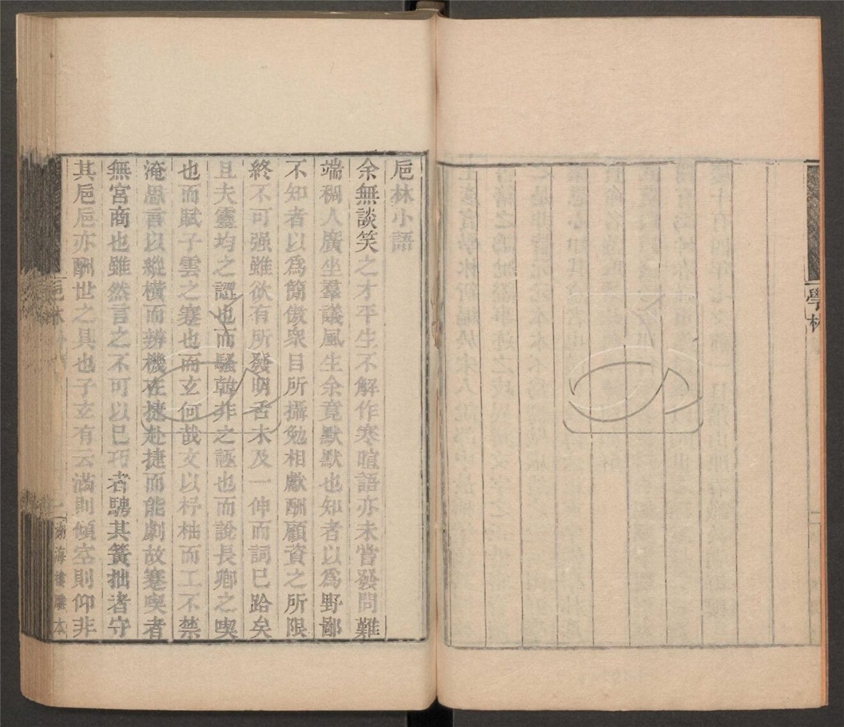 學林
巵林小語
余無談笑之才平生不解作寒暄語亦未嘗發問難
端稠人廣坐羣議風生余竟默默也知者以爲野鄙
不知者以爲簡傲衆目所攝勉相獻酬顧資之所限
終不可强雖欲有所發明舌未及一伸而詞已跲矣
且夫靈均之譖也而騷韓非之誣也而說長卿之喫
也而賦子雲之蹇也而玄何哉文以杼柚而工不禁
淹思言以縱橫而辨機在捷赴捷而能劇故蹇喫者
無宮商也雖然言之不可以已巧者騁其簧拙者守
其巵巵亦酬世之具也子玄有云滿則傾空則仰非
巵林
一
湖海樓雕本